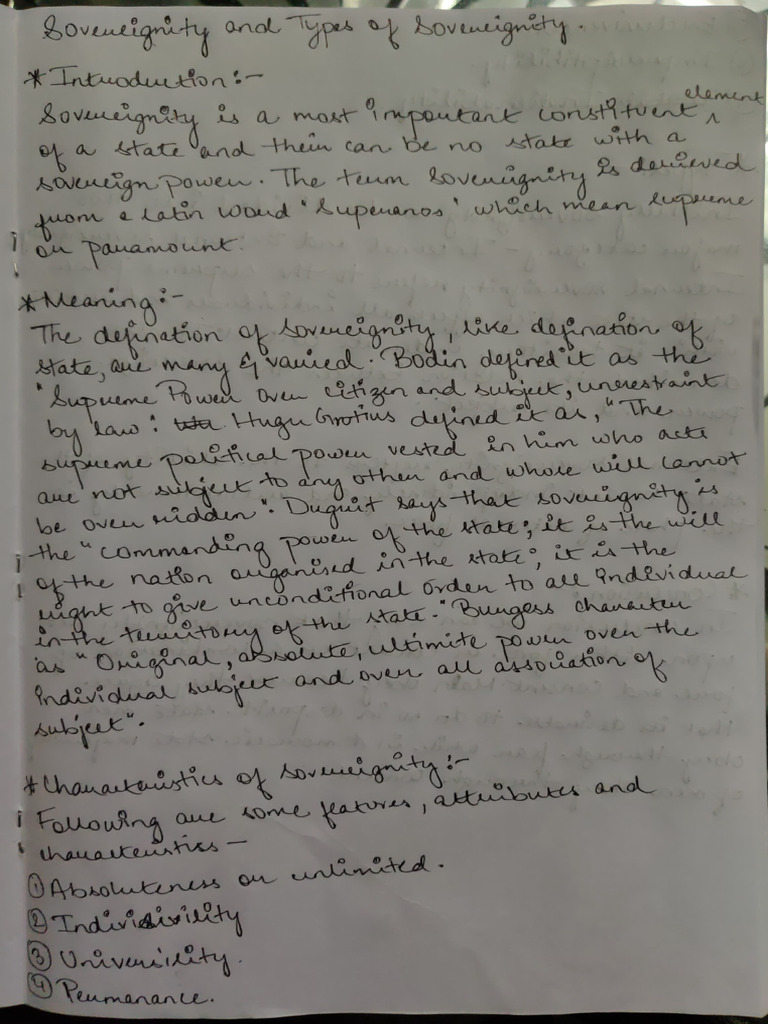 Sovereignity and Types of Sovereignity.
* Introduction:-
Sovereignity is a most important constituent element
of a state and their can be no state with a
sovereign power. The term Sovereignity is derieved
from a latin word 'Superanos' which mean supreme
or paramount.
* Meaning:-
The defination of sovereignity, like defination of
state, are many & varied. Bodin defined it as the
"Supreme Power over citizen and subject, unrestraint
by law". Hugu Grotius defined it as, "The
supreme political power vested in him who acts
are not subject to any other and whose will cannot
be over ridden". Duguit says that sovereignity is
the "commanding power of the state; it is the will
of the nation organised in the state; it is the
right to give unconditional order to all individual
in the territory of the state." Burgess character
as "Original, absolute, ultimite power over the
individual subject and over all association of
subject".
* Charactaristics of sovereignity:-
Following are some features, attributes and
characteristics -
① Absoluteness or unlimited.
② Indivisivility
③ Universility.
④ Permanance.